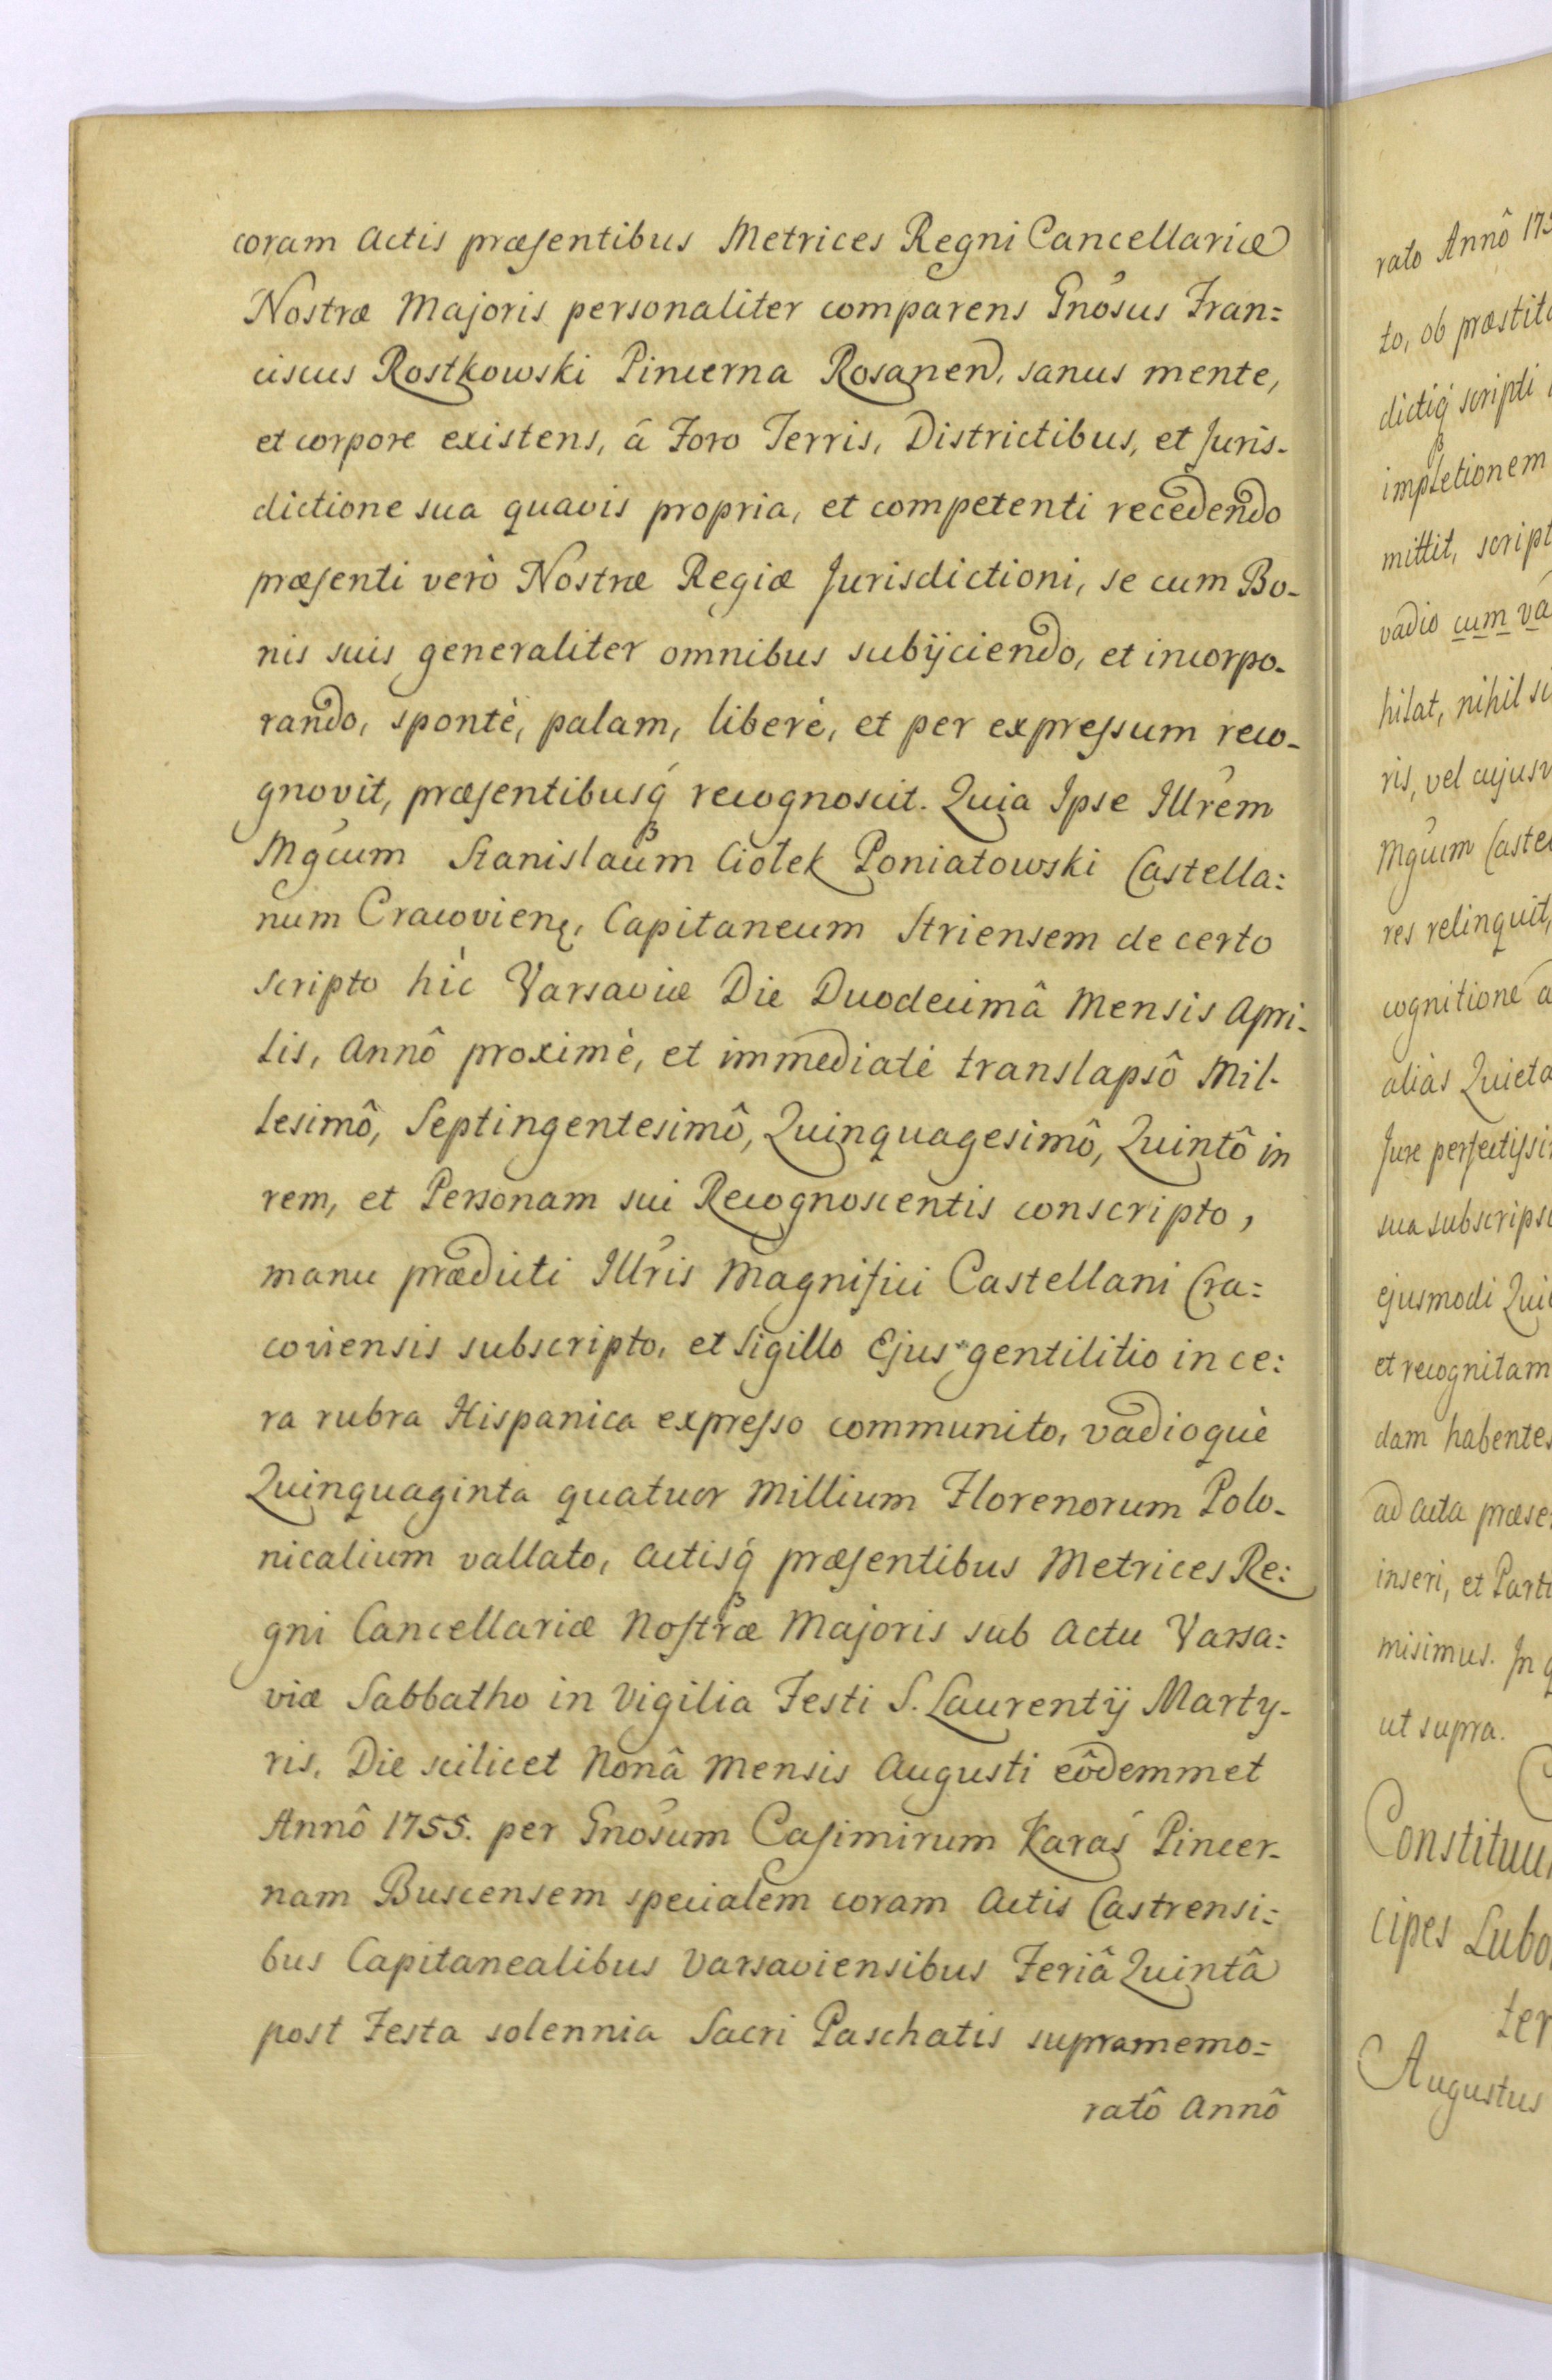 coram Actis præsentibus Metrices Regni Cancellariæ
Nostræ Majoris personaliter comparens Gnosus Fran=
ciscus Rostkowski Pincerna Rosanen. sanus mente,
et corpore existens, â Foro Terris, Districtibus, et Juris-
dictione sua quavis propria, et competenti recedendo
præsenti verò Nostræ Regiæ Jurisdictioni, se cum Bo-
nis suis generaliter omnibus subijciendo, et incorpo-
rando, spontè, palam, liberè, et per expressum reco-
gnovit, præsentibusq́ recognoscit. Quia Ipse Illrem
Mgcum Stanislaum Ciołek Poniatowski Castella=
num Cracovien, Capitaneum Striensem de certo
scripto hìc Varsaviæ Die Duodecimâ Mensis Apri-
lis, Annô proximè, et immediatè translapsô Mil-
lesimô, Septingentesimô, Quinquagesimô, Quintô in
rem, et Personam sui Recognoscentis conscripto,
manu prædicti Illris Magnifici Castellani Cra=
coviensis subscripto, et Sigillo Ejus gentilitio in ce=
ra rubra Hispanica expresso communito, vadioquè
Quinquaginta quatuor Millium Florenorum Polo-
nicalium vallato, Actisq́ præsentibus Metrices Re=
gni Cancellariæ Nostræ Majoris sub Actu Varsa=
viæ Sabbatho in Vigilia Festi S. Laurentij Marty-
ris, Die scilicet Nonâ Mensis Augusti eôdemmet
Annô 1755. per Gnosum Casimirum Karaś Pincer-
nam Buscensem specialem coram Actis Castrensi=
bus Capitanealibus Varsaviensibus Feriâ Quintâ
post Festa solennia Sacri Paschatis supramemo=
ratô Annô
rato Annô 175
to, ob præstita
dictiq́ scripti
impletionem
mittit, script
vadio cum va
hilat, nihil
ris, vel cujusv
Mgcum Caste
res relinquit,
cognitione
aliàs Quieta
Jure perfectissi
sua subscripsi
ejusmodi Qui
et recognitam
dam habentes
ad Acta præse
inseri, et Parti
misimus. In
ut supra.
Constituu
cipes Lubo
ter
Augustus